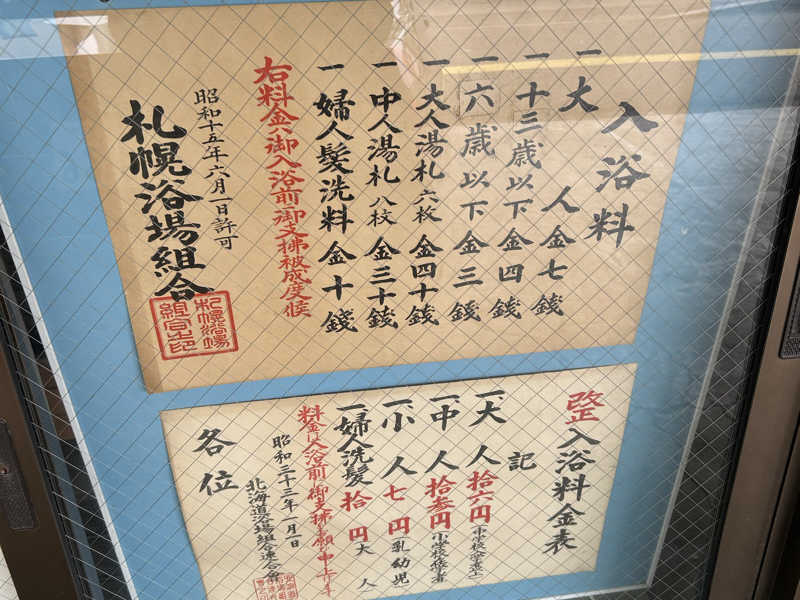 入浴料
一大人金七銭
一十三歳以下金四銭
一六歳以下金三銭
一大人湯札六枚金四十銭
一中人湯札八枚金三十銭
一婦人髪洗料金十銭
右料金ハ御入浴前御支拂被成度候
昭和十五年六月一日許可
札幌浴場組合
札幌浴場
組合之印
改正入浴料金表
記
一、大人拾六円
一、中人拾参円
一、小人七円(乳幼児)
一、婦人洗髪拾円大人
料金は入浴前に御支拂を願申上げます
昭和三十三年一月一日
北海道浴場組合連合会
各位